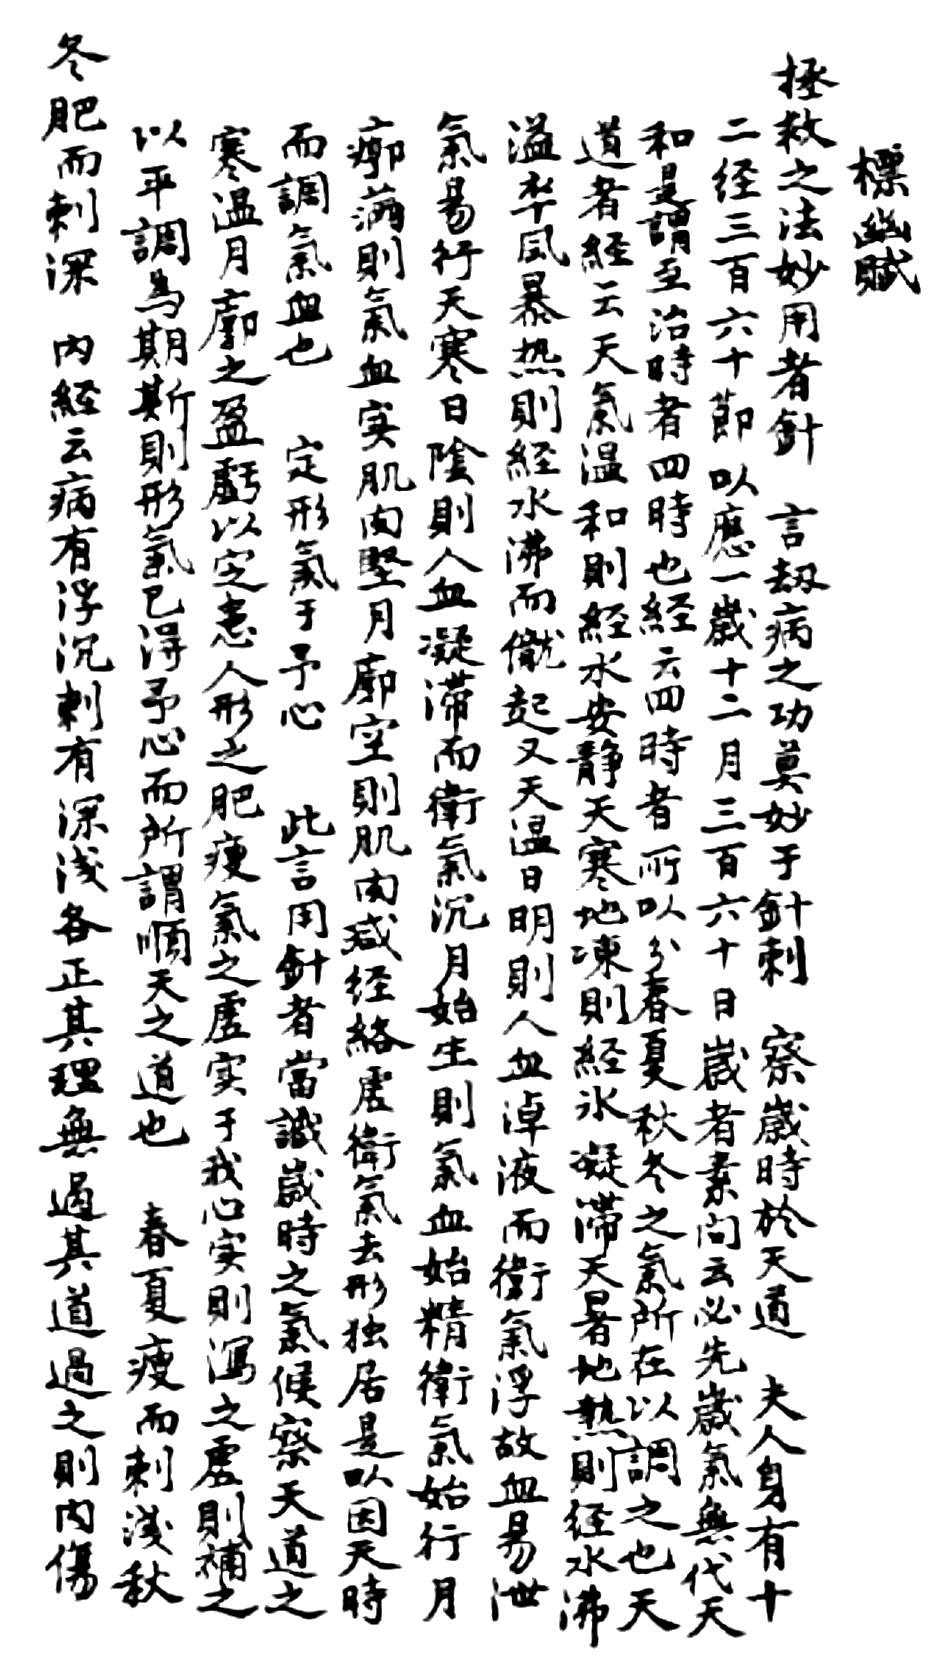 標幽賦
拯救之法妙用者針　言劫病之功莫妙于針刺　察歲時於天道　夫人身有十
二経三百六十節以應一歲十二月三百六十日歲者素问云必先歲氣無代天
和是謂至治時者四時也経云四時者所以分春夏秋冬之氣所在以調之也天
道者経云天氣温和則経水安静天寒地凍則経水凝滞天暑地熱則経水沸
溢卒風暴热則経水沸而㒕起又天温日明則人血淖液而衛氣浮故血易泄
氣易行天寒日陰則人血凝滞而衛氣沉月始生則氣血始精衛氣始行月
廓满則氣血实肌肉堅月廓空則肌肉减経絡虚衛氣去形独居是以因天時
而調氣血也　定形氣于予心　此言用針者當識歲時之氣候察天道之
寒温月廓之盈虧以定患人形之肥瘦氣之虚实于我心实則瀉之虚則補之
以平調為期斯則形氣已得予心而所謂順天之道也　春夏瘦而刺浅秋
冬肥而刺深　内経云病有浮沉刺有深浅各正其理無過其道過之則内傷